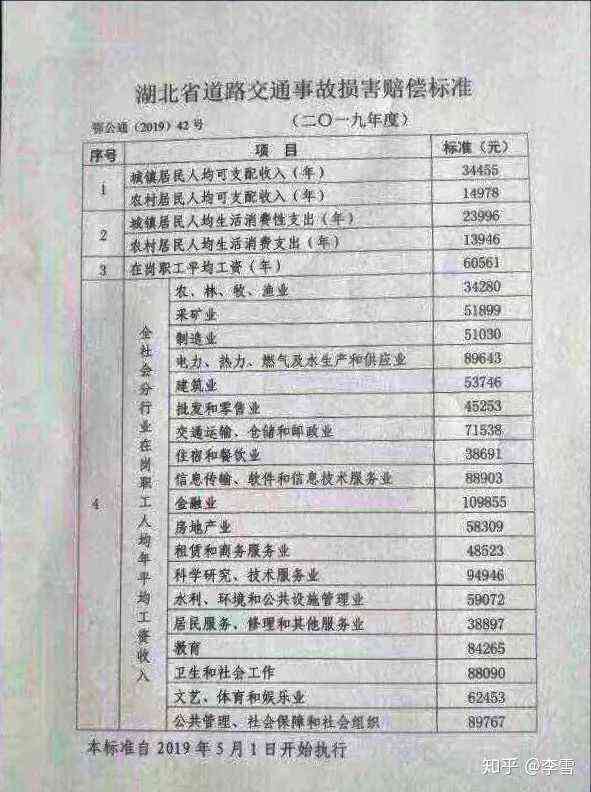 湖北省道路交通事故损害赔偿标准
鄂公通（2019）42号 （二〇一九年度）
序号 项 目 标准（元）
1 城镇居民人均可支配收入（年） 34455
农村居民人均可支配收入（年） 14978
2 城镇居民人均生活消费性支出（年） 23996
农村居民人均生活消费支出（年） 13946
3 在岗职工平均工资（年） 60561
4 全社会分行业在岗职工人均年平均工资收入
农、林、牧、渔业 34280
采矿业 51899
制造业 51030
电力、热力、燃气及水生产和供应业 89643
建筑业 53746
批发和零售业 45253
交通运输、仓储和邮政业 71538
住宿和餐饮业 38691
信息传输、软件和信息技术服务业 88903
金融业 109855
房地产业 58309
租赁和商务服务业 48523
科学研究、技术服务业 94946
水利、环境和公共设施管理业 59072
居民服务、修理和其他服务业 38897
教育 84265
卫生和社会工作 88090
文艺、体育和娱乐业 62453
公共管理、社会保障和社会组织 89767
本标准自2019年5月1日开始执行
知乎 @李雪